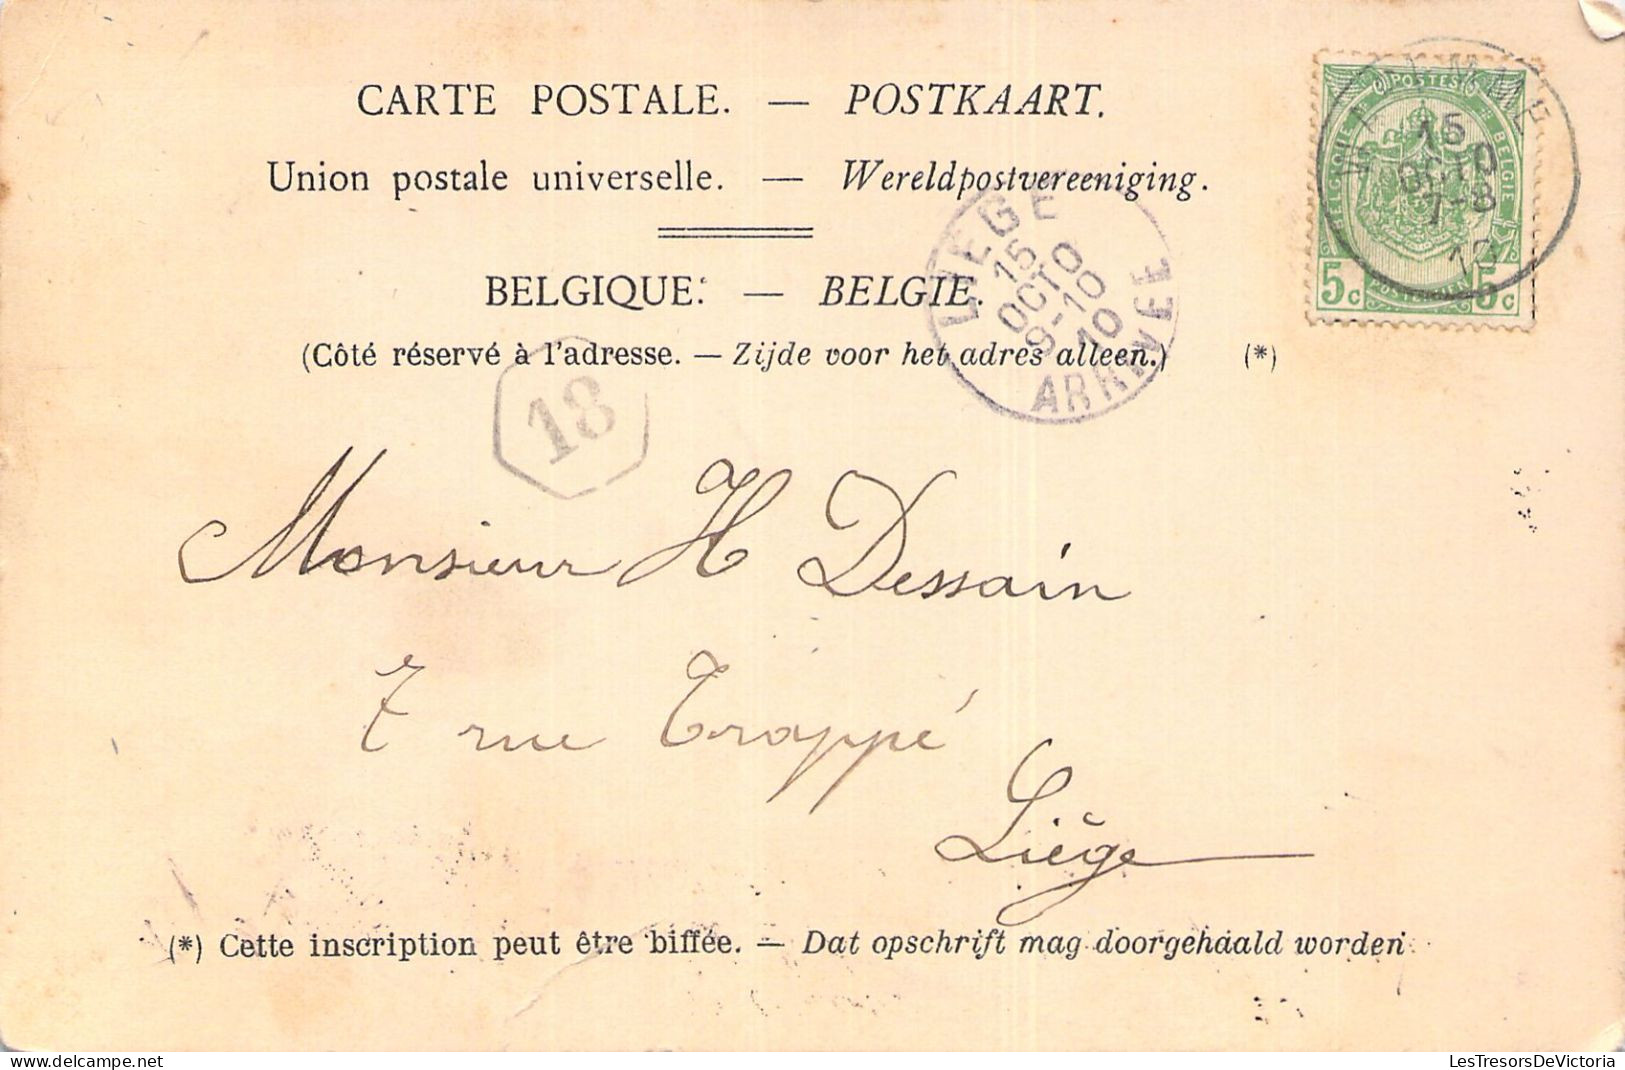 CARTE POSTALE. — POSTKAART.
Union postale universelle. — Wereldpostvereeniging.
BELGIQUE. — BELGIE.
(Côté réservé à l'adresse. — Zijde voor het adres alleen.) (*)
POSTES
BELGIQUE BELGIE
5c POSTERIJEN 5c
15
OCTO
7-8
10
LIEGE
15
OCTO
9-10
10
ARRIVEE
18
Monsieur H Dessain
7 rue Trappé
Liége
(*) Cette inscription peut être biffée. — Dat opschrift mag doorgehaald worden
delcampe.net
LesTresorsDeVictoria